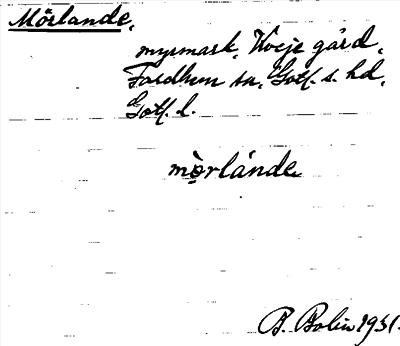 Mörlande,
myrmark, Kveje gård,
Fardhem sn, Gotl. s. hd,
Gotl. l.
mò̤rlánde
B. Bolin 1931.